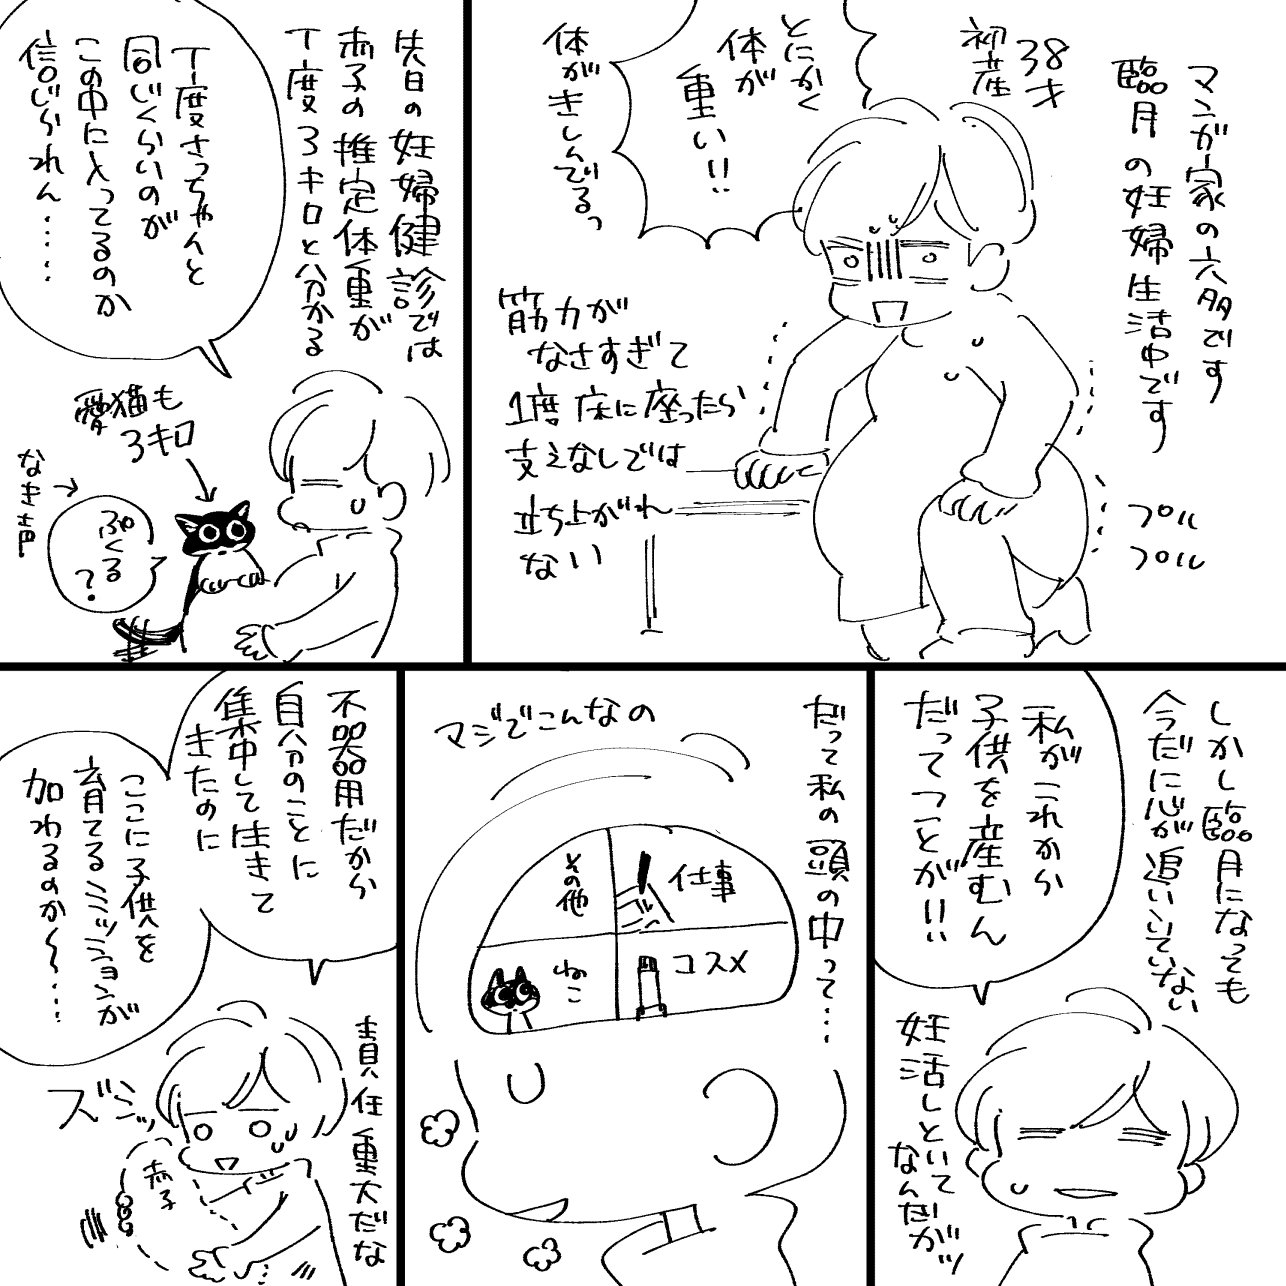 マンガ家の六多です
臨月の妊婦生活中です
38才
初産
とにかく
体が
重い!!
体がきしんでるっ
筋力が
なさすぎて
1度床に座ったら
支えなしでは
立ち上がれ
ない
プル
プル
先日の妊婦健診では
赤子の推定体重が
丁度3キロと分かる
丁度さっちゃんと
同じくらいのが
この中に入ってるのか
信じられん・・・・
愛猫も
3キロ
なき声
ぷくる
?
しかし臨月になっても
今だに心が追いついていない
私がこれから
子供を産むん
だってつことが!!
妊活しといて
なんだがッ
だって私の頭の中って・・・
マジでこんなの
仕事
その他
コスメ
ねこ
不器用だから
自分のことに
集中して生きて
きたのに
ここに子供を
育てるミッションが
加わるのか〜・・・
責任重大だな
ズシッ
赤子